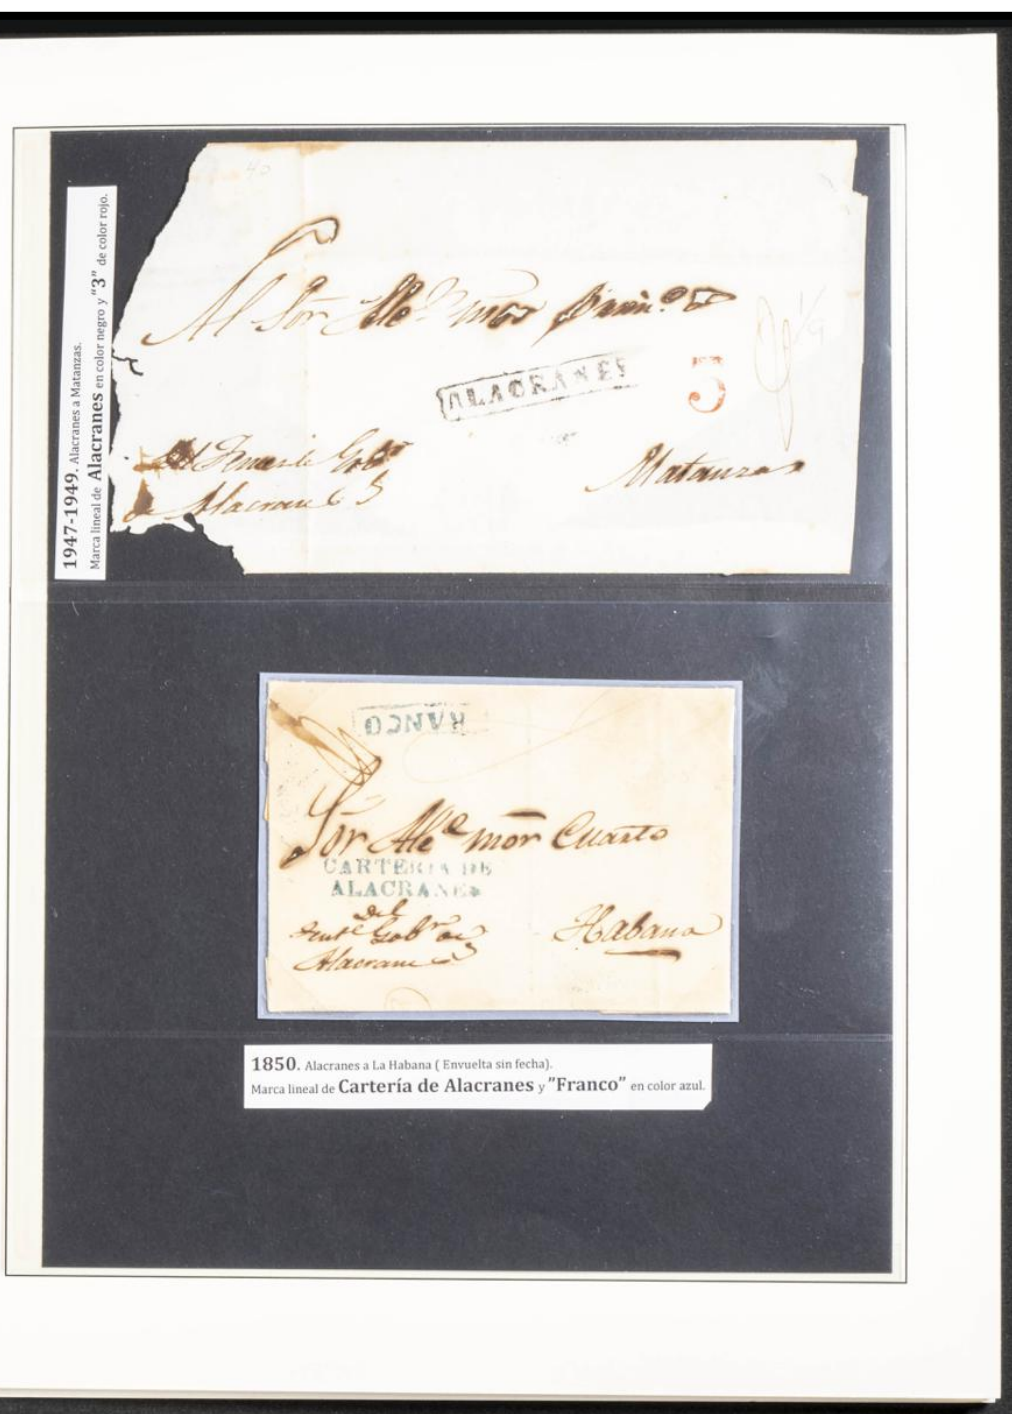 1947-1949. Alacranes a Matanzas.
Marca lineal de Alacranes en color negro y "3" de color rojo.
Al Sor Alce mor
ALACRANES
3
Gobor
Alacranes
Matanzas
RANCO
Sor Alce mor Cuarto
CARTERIA DE
ALACRANES
Del
Tente Gobor de
Alacranes
Habana
1850. Alacranes a La Habana ( Envuelta sin fecha).
Marca lineal de Cartería de Alacranes y "Franco" en color azul.